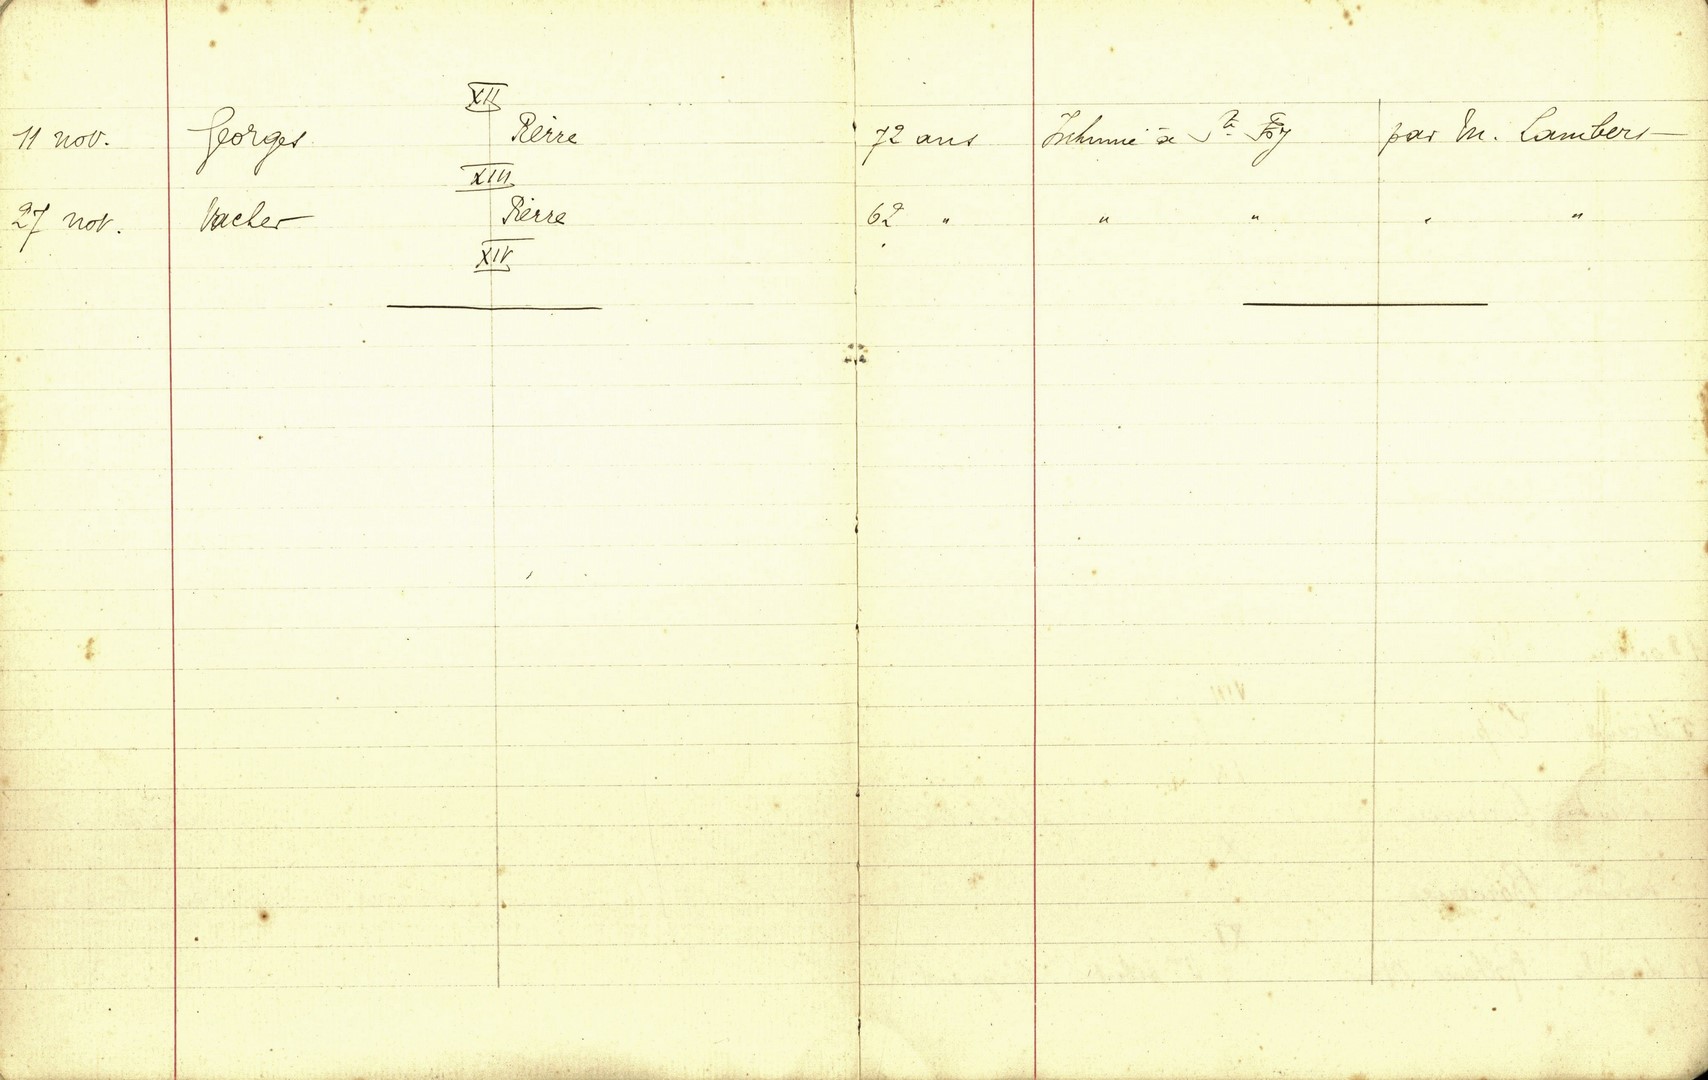 XII
11 nov. Georges Pierre 72 ans Inhumé à Ste Foy par M. Lambert
XIII
27 nov. Vacher Pierre 62 " " " " "
XIV